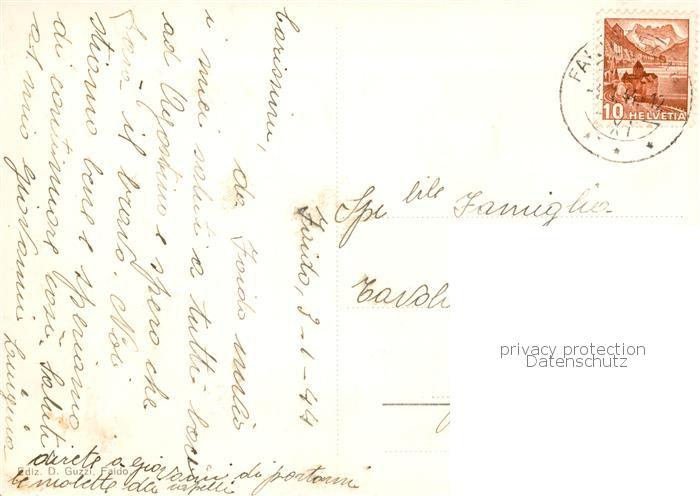 Faido, 3-1-44
Carissimi,
da Faido invio
i miei saluti a tutti baci
ad Agostino e spero che
farà il bravo. Noi
stiamo bene e speriamo
di continuare così. Saluti
al mio Giovanni
Luigina
direte a Giovanni di portarmi
le molette dei capelli
Ediz. D. Guzzi, Faido
10 HELVETIA
FAIDO
Spe bile Famiglia
privacy protection
Datenschutz